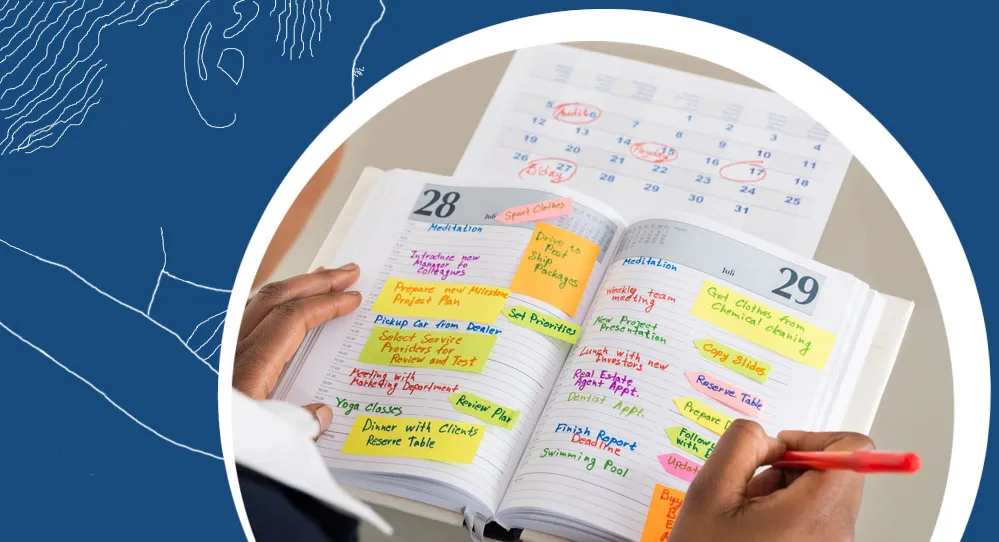 1 2 3 4
5 Audit 6 7 8 9 10 11
12 13 14 15 16 17 18
19 20 21 22 23 24 25
26 27 28 29 30 31
B'day
28
Juli
Sport Clothes
Meditation
Drive to
Post
Ship
Packages
Introduce new
Manager to
colleagurs
Prepare new Milestone
Project Plan
Set Priorities
Pickup Car from Dealer
Select Service
Providers for
Review and Test
Meeting with
Marketing Department
Review Plan
Yoga Classes
Dinner with Clients
Reserve Table
Juli
29
Meditation
Weekly team
meeting
Get Clothes from
Chemical cleaning
New Project
Presentation
Copy Slides
Lunch with new
Investors
Reserve Table
Real Estate
Agent Appt.
Dentist Appt.
Prepare
Follow
with
Finish Report
Deadline
Swimming Pool